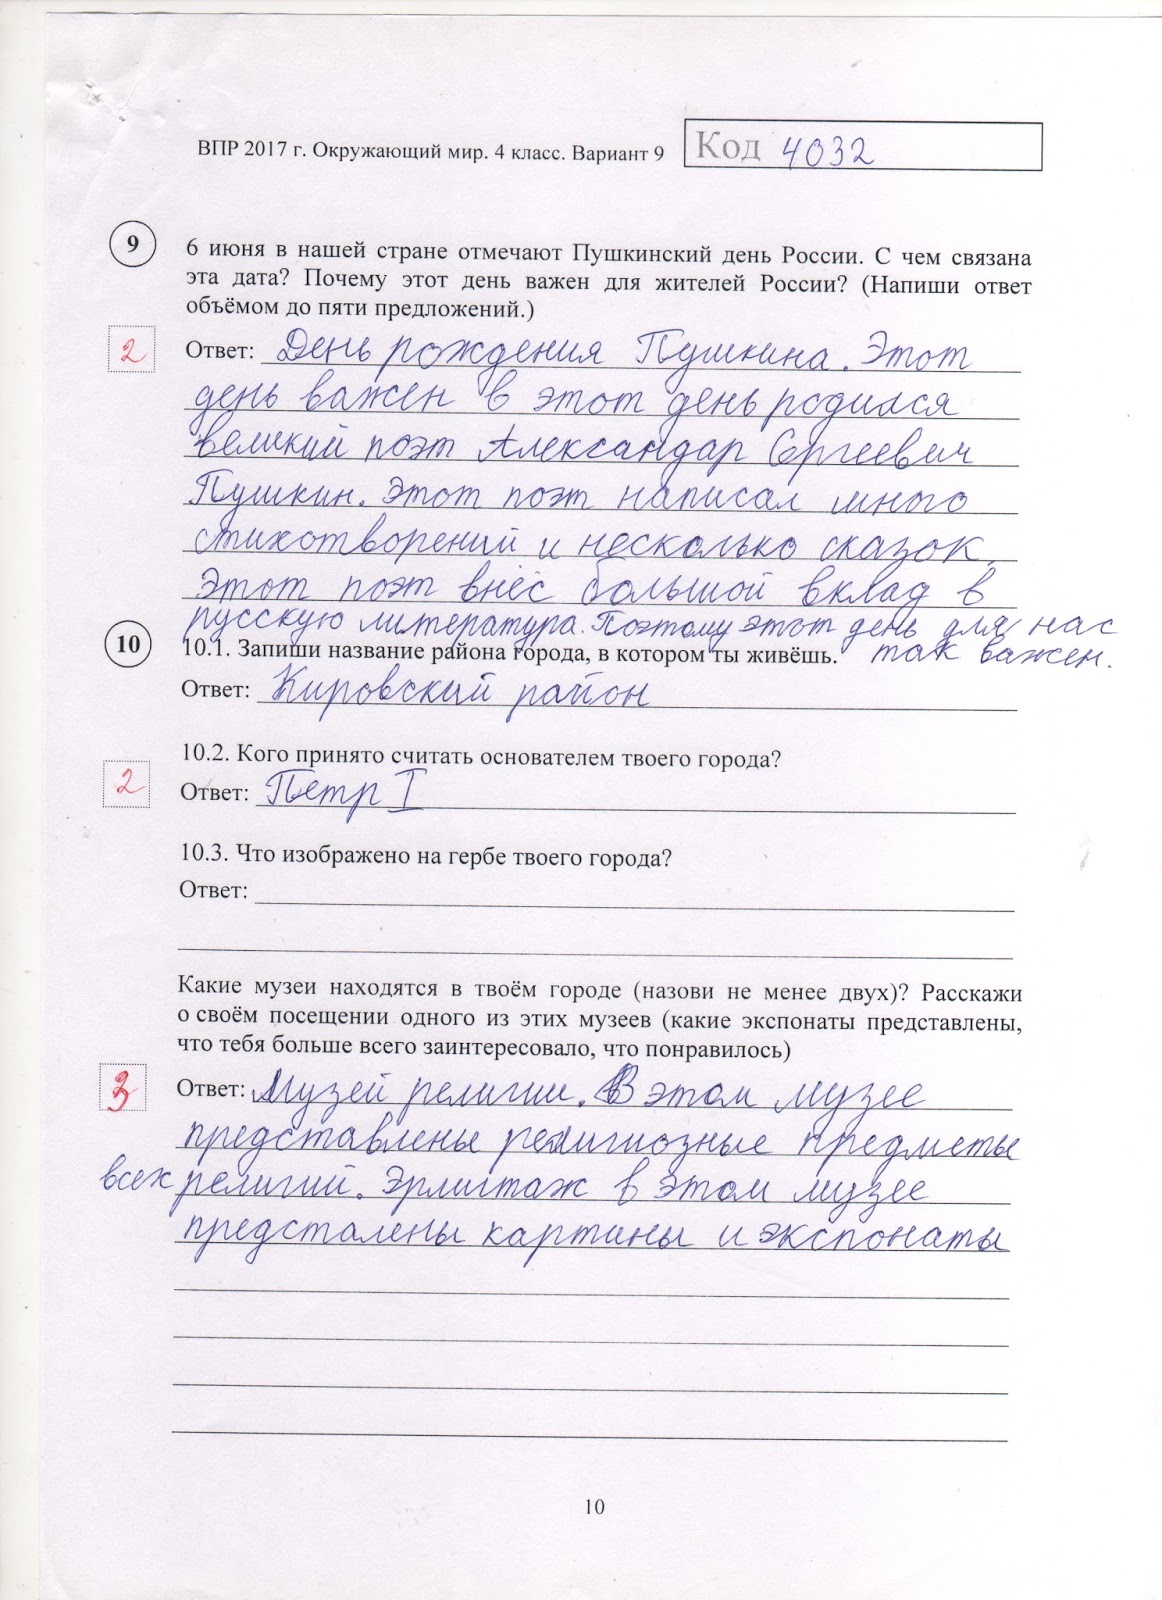 ВПР 2017 г. Окружающий мир. 4 класс. Вариант 9
Код 4032
9
6 июня в нашей стране отмечают Пушкинский день России. С чем связана
эта дата? Почему этот день важен для жителей России? (Напиши ответ
объёмом до пяти предложений.)
2
Ответ: День рождения Пушкина. Этот
день важен в этот день родился
великий поэт Александар Сергеевич
Пушкин. Этот поэт написал много
стихотворений и несколько сказок.
Этот поэт внёс большой вклад в
русскую литература. Поэтому этот день для нас
так важен.
10
10.1. Запиши название района города, в котором ты живёшь.
Ответ: Кировский район
10.2. Кого принято считать основателем твоего города?
2
Ответ: Петр I
10.3. Что изображено на гербе твоего города?
Ответ:
Какие музеи находятся в твоём городе (назови не менее двух)? Расскажи
о своём посещении одного из этих музеев (какие экспонаты представлены,
что тебя больше всего заинтересовало, что понравилось)
3
Ответ: Музей религии. В этом музее
представлены религиозные предметы
всех религий. Эрмитаж в этом музее
предсталены картины и экспонаты
10